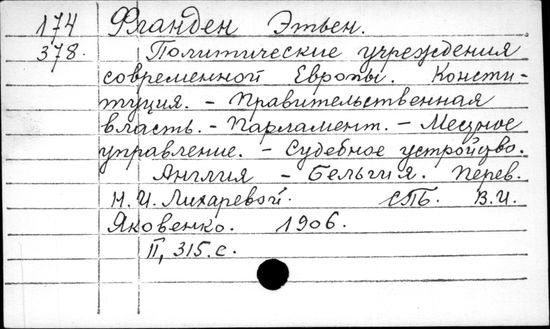 174 Фланден Этьен.
378. Политические учреждения
современной Европы. Консти-
туция. - Правительственная
власть. - Парламент. - Местное
управление. - Судебное устройство.
Англия - Бельгия. Перев.
Н.И. Лихаревой. СПб. В.И.
Яковенко. 1906.
II, 315 с.